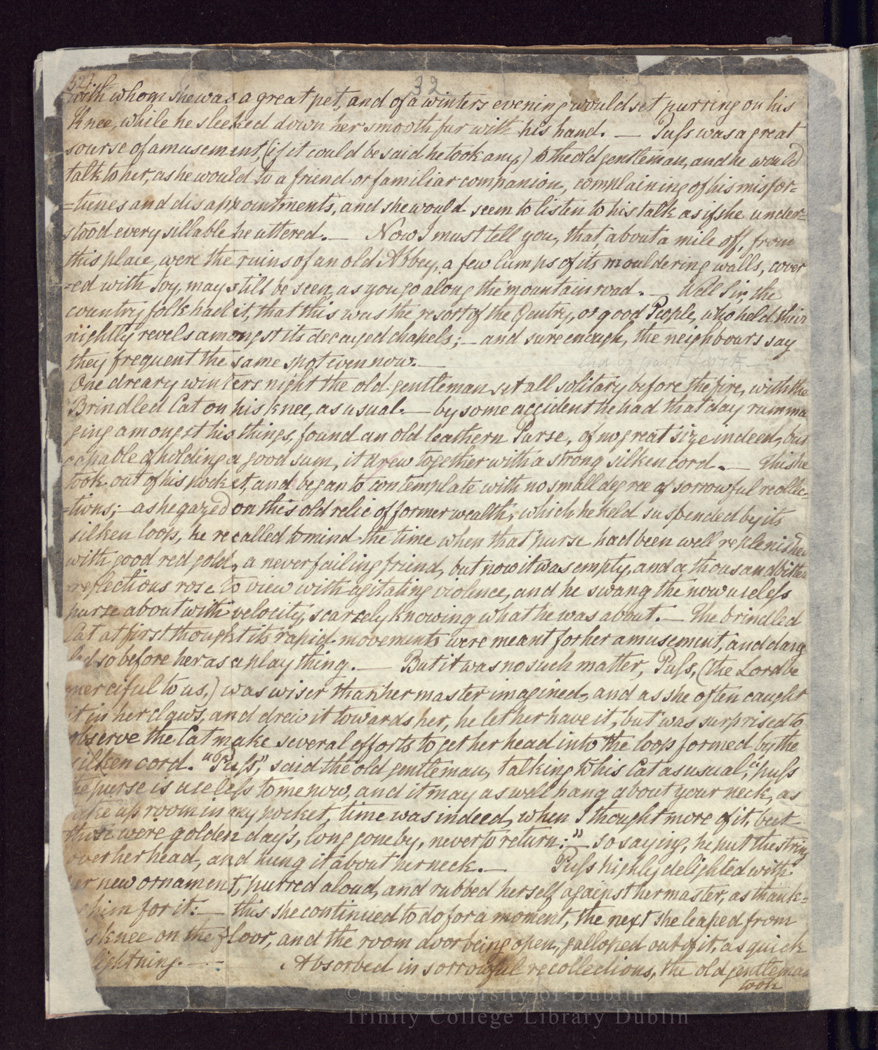 32
with whom she was a great pet, and of a winters evening would set purring on his
Knee, while he sleeked down her smooth fur with his hand. — Puſs was a great
sourse of amusement, (if it could be said he took any) to the old gentleman, and he would
talk to her, as he would to a friend or familiar companion, complaining of his misfor-
=tunes and disappointments, and she would seem to listen to his talk as if she under=
stood every sillable he uttered. — Now I must tell you, that, about a mile off, from
this place, were the ruins of an old Abbey, a few lumps of its mouldering walls, cover
=ed with Ivy, may still be seen, as you go along the mountain road. — Well Sir, the
country folk had it, that this was the resort of the Gentry, or good People, who held their
nightly revels amongst its decayed chapels; — and sure enough, the neighbours say
they frequent the same spot even now. —
One dreary winters night the old gentleman set all solitary before the fire, with the
Brindled Cat on his knee, as usual. — by some accident he had that day rumma
ging amongst his things, found an old leathern Purse, of no great size indeed, but
capable of holding a good sum, it drew together with a strong silken cord. — This he
took out of his pocket, and began to contemplate with no small degree of sorrowful recollec
=tions; — as he gazed on this old relic of former wealth, which he held suspended by its
silken loop, he recalled to mind the time when that purse had been well replenished
with good red gold, a never failing friend, but now it was empty, and a thousand bitter
reflections rose to view with agitating violence, and he swang the now useleſs
purse about with velocity, scarcely knowing what he was about. — The brindled
Cat at first thought its rapid movements were meant for her amusement, and dang
led so before her as a play thing. — But it was no such matter, Puſs, (the Lord be
merciful to us,) was wiser than her master imagined, and as she often caught
it in her claws, and drew it towards her, he let her have it, but was surprised to
observe the Cat make several efforts to get her head into the loop formed by the
silken cord. "Puſs," said the old gentleman, talking to his Cat as usual, "puſs
the purse is useleſs to me now, and it may as well hang about your neck, as
take up room in my pocket, time was indeed, when I thought more of it, but
those were golden days, long gone by, never to return;" — so saying, he put the string
over her head, and hung it about her neck. — Puſs highly delighted with
her new ornament, purred aloud, and rubbed herself against her master, as thank=
him for it: — this she continued to do for a moment, the next she leaped from
his knee on the floor, and the room door being open, galloped out of it, as quick
lightning. — Absorbed in sorrowful recollections, the old gentleman
took
©The University of Dublin
Trinity College Library Dublin